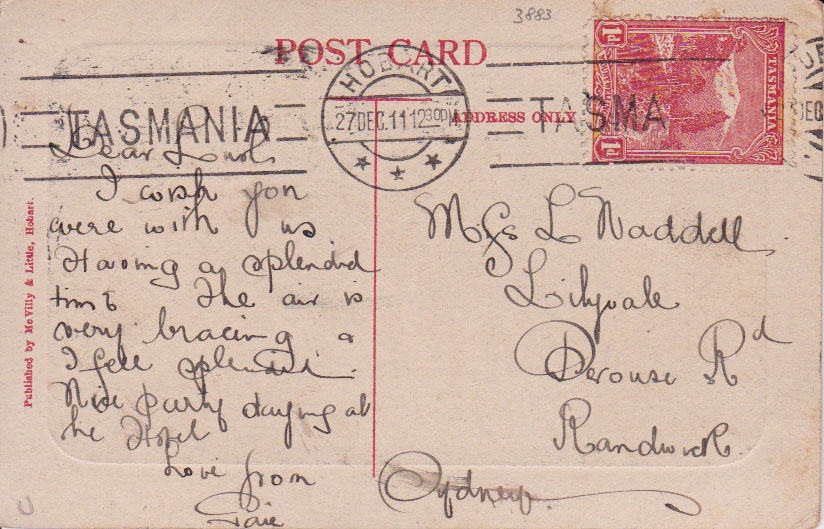 3883
POST CARD
HOBART
27DEC.11 1230PM
TASMANIA
TASMA
ADDRESS ONLY
1d
TASMANIA
1d
Published by McVilly & Little, Hobart.
Dear
I wish you
were with us
Having a splendid
time The air is
very bracing &
I feel splendid.
Nice party staying at
the Hotel
Love from
Mrs L Waddell
Lilyvale
Perouse Rd
Randwick
Sydney.